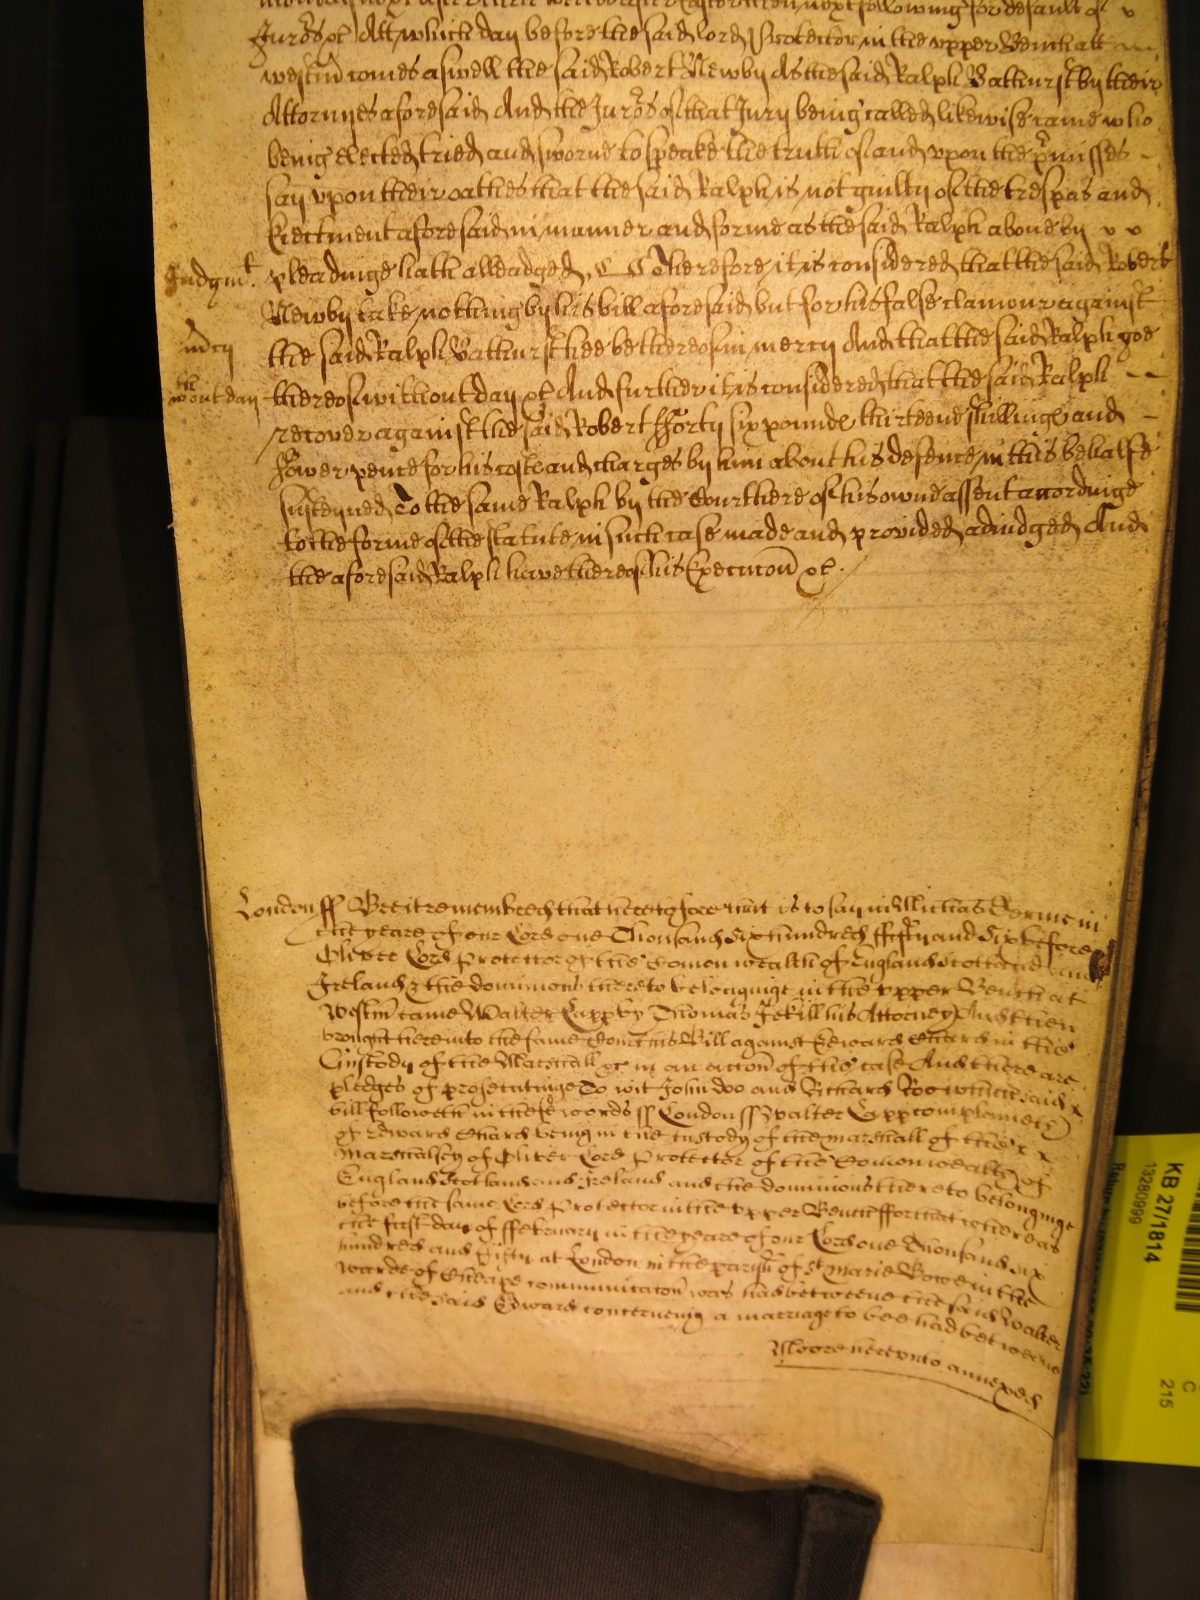 next following for default of
Juro.rs &c Att which day before the said lord Protector in the upper Bench att
westm.r comes aswell the said Robert Newby As the said Ralph Bathurst by their
Attornyes aforesaid And the Juro.rs of that Jury being called likewise came who
being elected tried and sworne to speake the truth of and upon the p.rmisses
say upon their oathes that the said Ralph is not guilty of the trespas and
Eiectment aforesaid in manner and forme as the said Ralph above by
Judgm.t
pleadinge hath alleadged, Therefore it is considered that the said Robert
Newby take nothing by his bill aforesaid but for his false clamour against
m̃cy
the said Ralph Bathurst hee be thereof in mercy And that the said Ralph goe
w.th out day
thereof without day &c And further it is considered that the said Ralph
recover against the said Robert fforty six pounds thirteene shillings and
fower pence for his costs and charges by him about his defence in this behalfe
susteyned To the same Ralph by the Court here of his owne assent accordinge
to the forme of the statute in such case made and provided adiudged And
the aforesaid Ralph have thereof his Execuc̃on &c.
London ss Bee it remembred that heretofore that is to say in Michās Terme in
the yeare of our Lord one Thousand Six hundred ffifty and Six before
Oliver Lord Protector of the Comon wealth of England Scotland and
Ireland & the dominions thereto belonginge in the upper Bench at
Westm̃ came Walter Capp by Thomas Jekill his Attorney And then
brought here into the same Court his Bill against Edward in the
Custody of the Marshall &c in an acc̃on of the case And there are
pledges of prosecutinge To wit John Doo and Richard Roo which said
bill followeth in these words ss London ss Walter Capp complaineth
of Edward being in the custody of the marshall of the
Marshalsey of Oliver Lord Protector of the Comonwealth of
England Scotland and Ireland and the dominions thereto belonginge
before the same Lord Protector in the upper Bench ffor that whereas
the first day of ffebruary in the yeare of our Lord one Thousand six
hundred and fifty at London in the parish of S.t Marie Bowe in the
warde of Cheape communicac̃on was had betweene the said Walter
and the said Edward concerneing a marriage to bee had betweene
Moore hereunto annexed
KB 27/1814
13280999
C
215